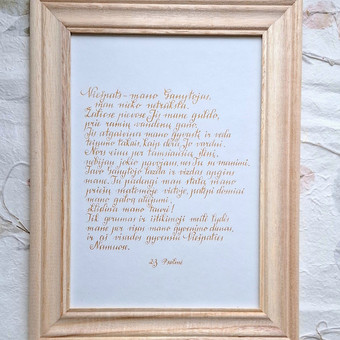 Viešpats – mano Ganytojas,
man nieko netrūksta.
Žaliose pievose Jis mane guldo,
prie ramių vandenų gano.
Jis atgaivina mano gyvastį ir veda
teisumo takais, kaip dera Jo vardui.
Nors einu per tamsiausią slėnį,
nebijau jokio pavojaus, nes Tu su manimi.
Tavo Ganytojo lazda ir vėzdas apgins
mane. Tu padengi man stalą mano
priešų matomoje vietoje, patepi
mano galvą aliejumi,
sklidina mano taurė!
Tik gerumas ir ištikimoji meilė lydės
mane per visą mano gyvenimo dienas,
ir aš visados gyvensiu Viešpaties
Namuose.
23 Psalmė